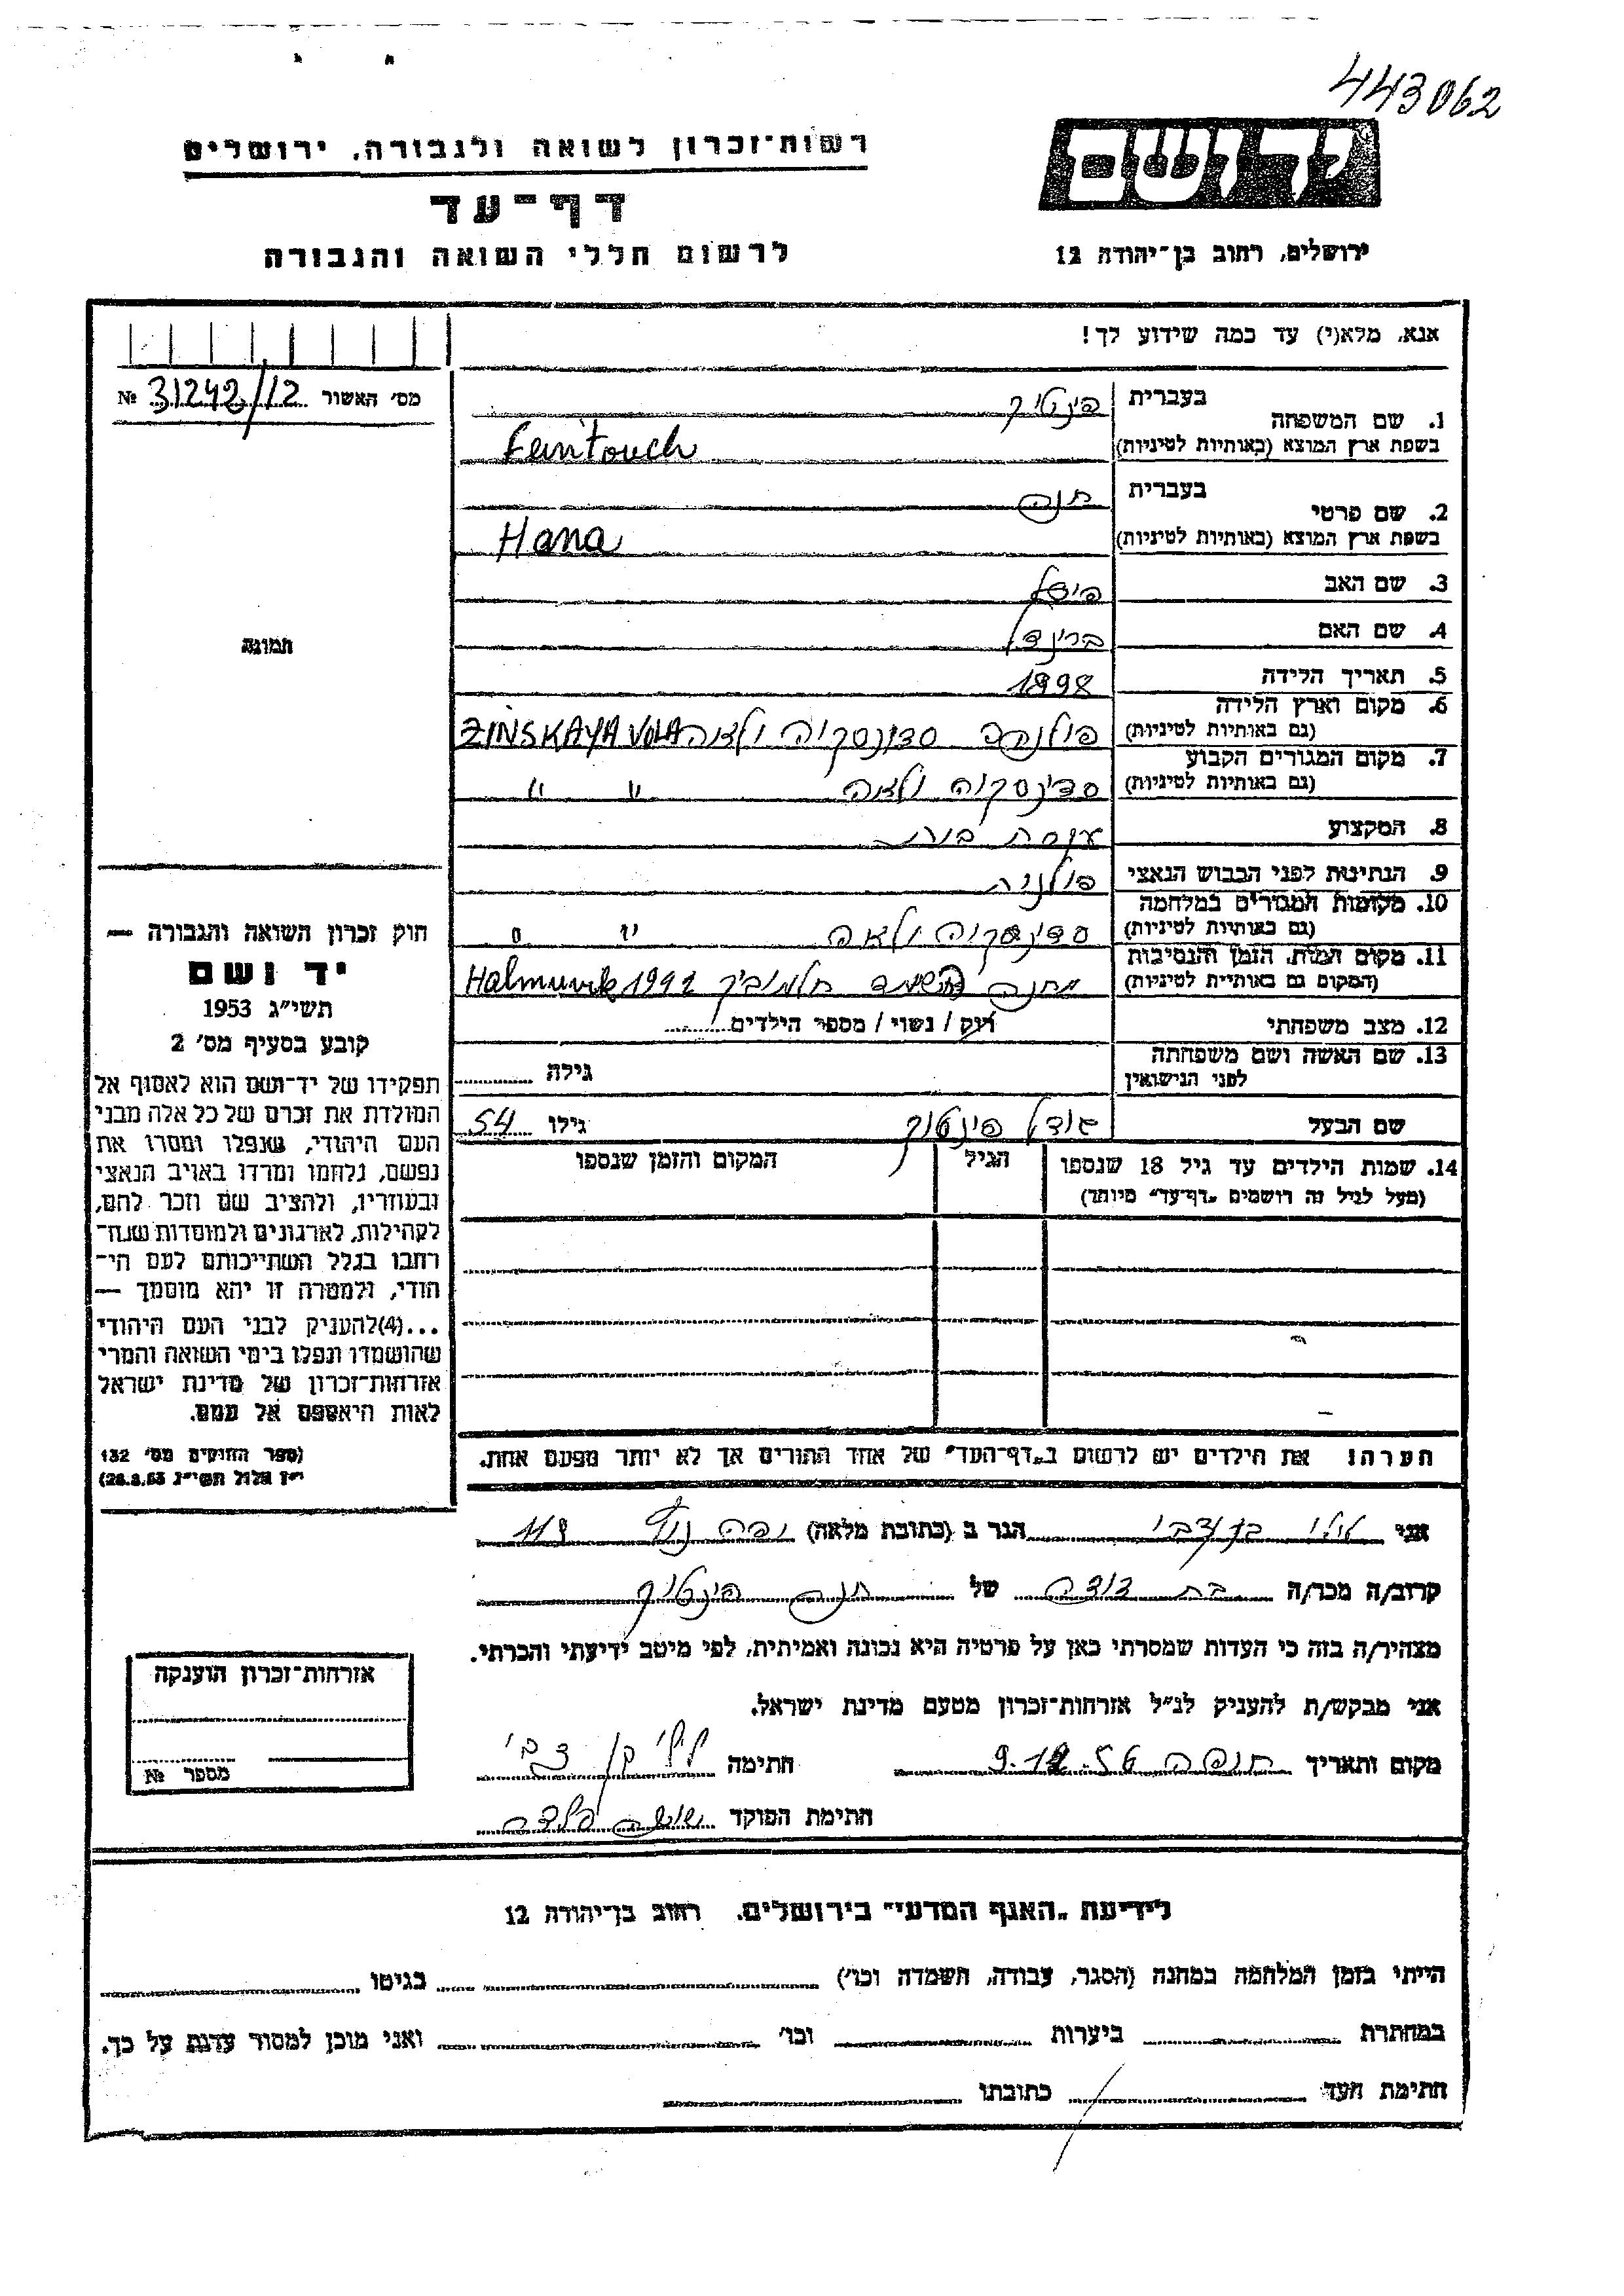 443062
יד ושם
רשות־זכרון לשואה ולגבורה, ירושלים
דף־עד
לרשום חללי השואה והגבורה
ירושלים, רחוב בן־יהודה 12
אנא, מלא(י) עד כמה שידוע לך!
מס' האשור 31242/12 №
תמונה
1. שם המשפחה
בעברית
בשפת ארץ המוצא (באותיות לטיניות) Feintouch
2. שם פרטי
בעברית חנה
בשפת ארץ המוצא (באותיות לטיניות) Hana
3. שם האב
4. שם האם
5. תאריך הלידה 1898
6. מקום וארץ הלידה
(גם באותיות לטיניות) ZINSKAYA VOLA
7. מקום המגורים הקבוע
(גם באותיות לטיניות) " "
8. המקצוע עקרת בית
9. הנתינות לפני הכבוש הנאצי פולנית
10. מקומות המגורים במלחמה
(גם באותיות לטיניות)
11. מקום המות, הזמן והנסיבות
(המקום גם באותיות לטיניות) מחנה השמד 1942
12. מצב משפחתי רוק / נשוי / מספר הילדים
13. שם האשה ושם משפחתה
לפני הנישואין גילה
שם הבעל גילו 54
14. שמות הילדים עד גיל 18 שנספו
(מעל לגיל זה רושמים „דף־עד" מיוחד)
הגיל
המקום והזמן שנספו
הערה: את הילדים יש לרשום ב„דף־העד" של אחד ההורים אך לא יותר מפעם אחת.
חוק זכרון השואה והגבורה —
יד ושם
תשי"ג 1953
קובע בסעיף מס' 2
תפקידו של יד־ושם הוא לאסוף אל
המולדת את זכרם של כל אלה מבני
העם היהודי, שנפלו ומסרו את
נפשם, נלחמו ומרדו באויב הנאצי
ובעוזריו, ולהציב שם וזכר להם,
לקהילות, לארגונים ולמוסדות שנח־
רחבו בגלל השתייכותם לעם הי־
הודי, ולמטרה זו יהא מוסמך —
...(4) להעניק לבני העם היהודי
שהושמדו ונפלו בימי השואה והמרי
אזרחות־זכרון של מדינת ישראל
לאות היאספם אל עמם.
(ספר החוקים מס' 132
י"ז אלול תשי"ג 28.8.53)
אני הגר ב (כתובת מלאה) יפה נוף 118
קרוב/ה מכר/ה בת דודה של חנה
מצהיר/ה בזה כי העדות שמסרתי כאן על פרטיה היא נכונה ואמיתית, לפי מיטב ידיעתי והכרתי.
אני מבקש/ת להעניק לנ"ל אזרחות־זכרון מטעם מדינת ישראל.
מקום ותאריך חיפה חתימה
חתימת הפוקד
אזרחות־זכרון הוענקה
מספר №
לידיעת „האגף המדעי" בירושלים, רחוב בן־יהודה 12
הייתי בזמן המלחמה במחנה (הסגר, עבודה, השמדה וכו') בגיטו
במחתרת ביערות וכו' ואני מוכן למסור עדות על כך.
חתימת העד כתובתו